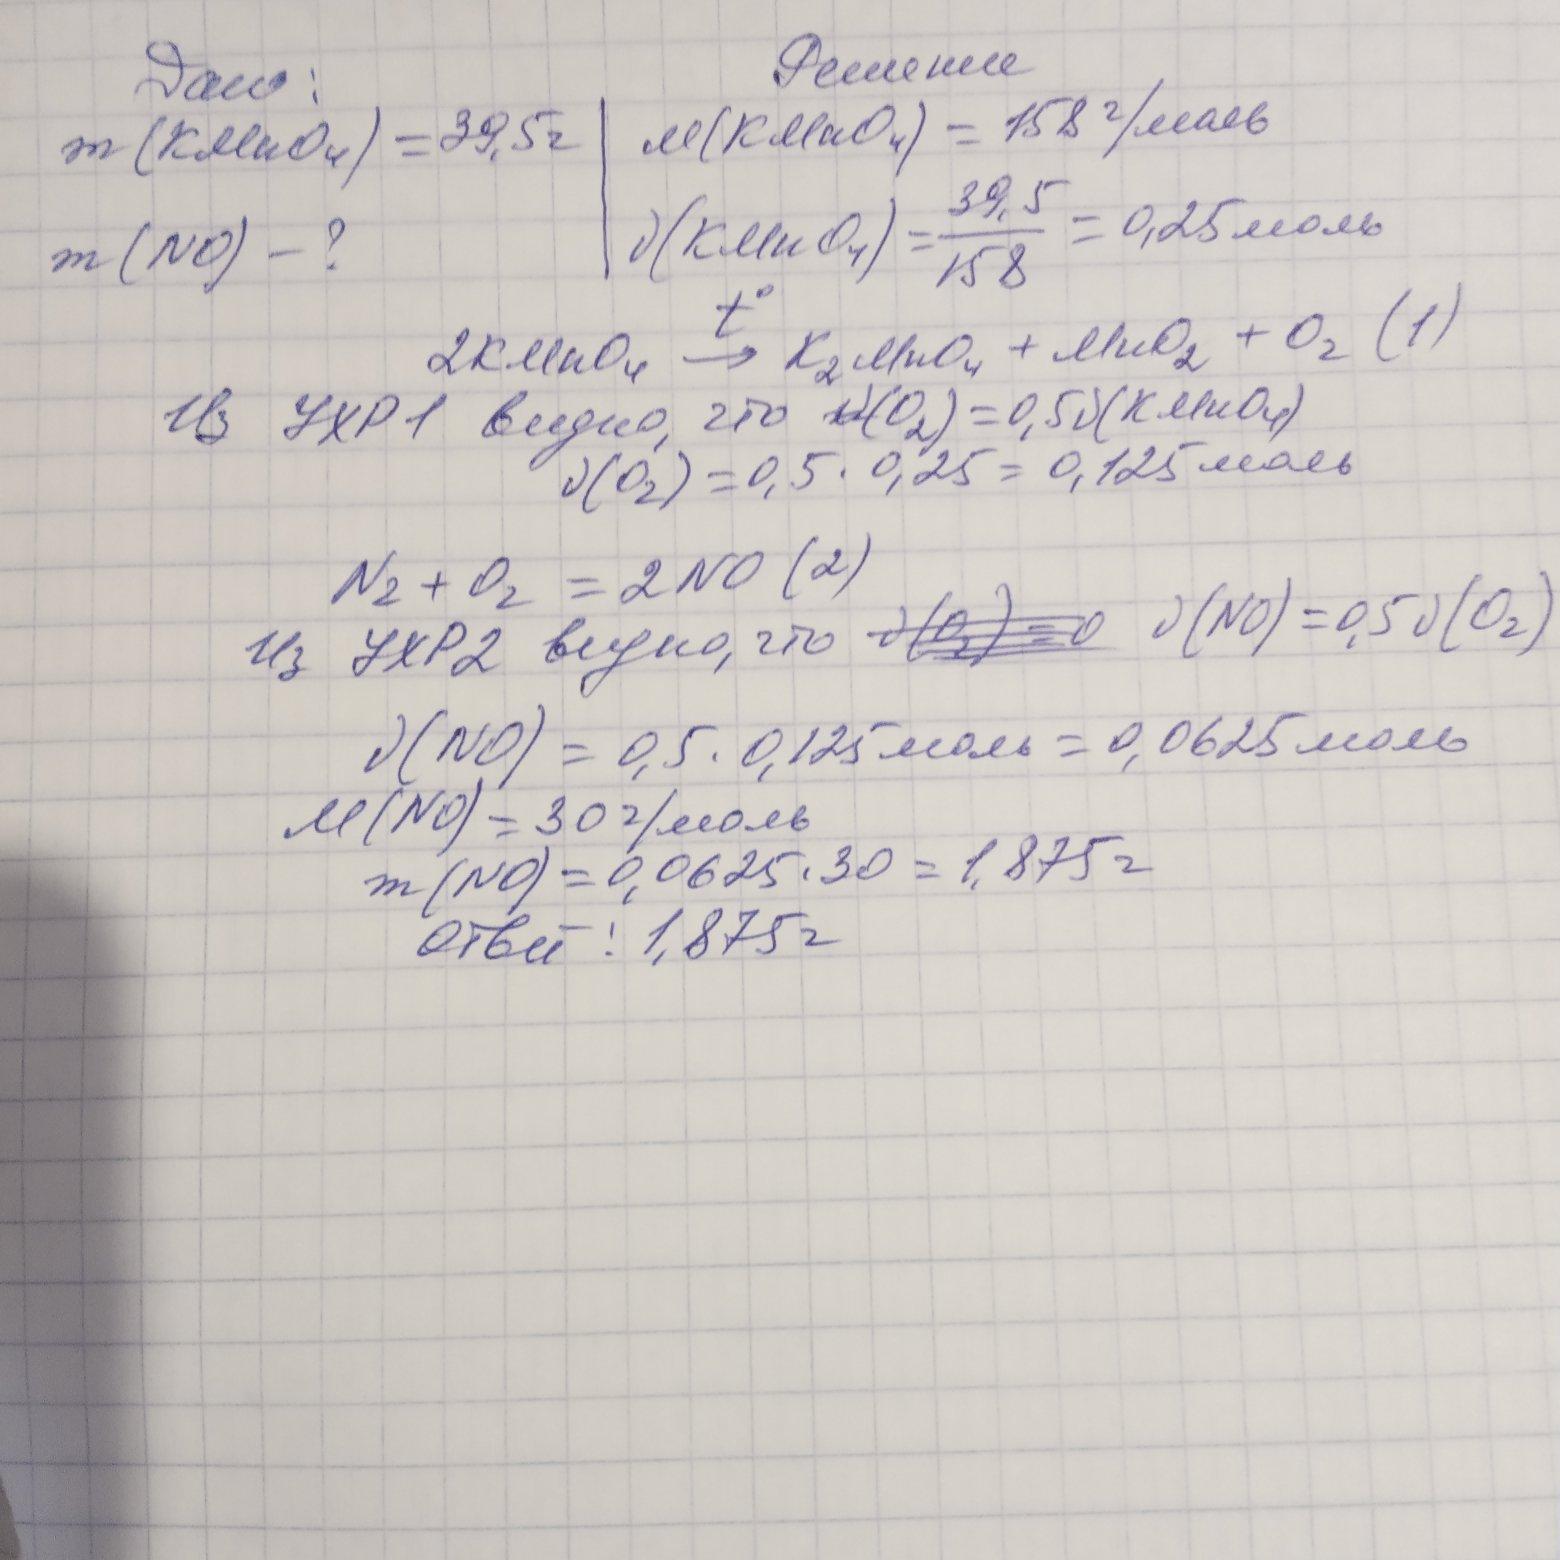 Дано:
Решение
m(KMnO₄) = 39,5г
M(KMnO₄) = 158 г/моль
m(NO) – ?
ν(KMnO₄) = 39,5/158 = 0,25 моль
2KMnO₄ t°→ K₂MnO₄ + MnO₂ + O₂ (1)
Из УХР1 видно, что ν(O₂) = 0,5ν(KMnO₄)
ν(O₂) = 0,5 · 0,25 = 0,125 моль
N₂ + O₂ = 2NO (2)
Из УХР2 видно, что ν(O₂) = 0 ν(NO) = 0,5ν(O₂)
ν(NO) = 0,5 · 0,125 моль = 0,0625 моль
M(NO) = 30 г/моль
m(NO) = 0,0625 · 30 = 1,875г
Ответ: 1,875г